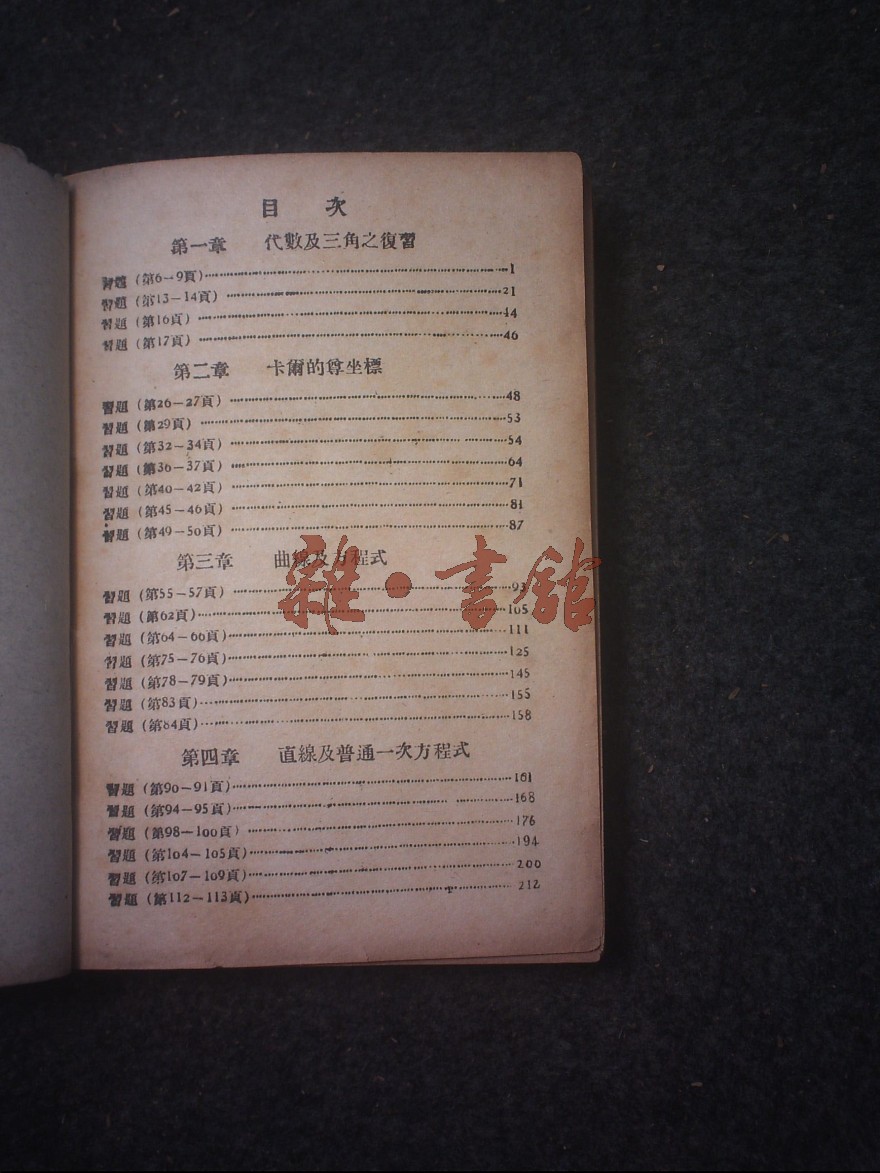 目 次
第一章 代數及三角之復習
習題(第6－9頁)………1
習題(第13－14頁)………21
習題(第16頁)………44
習題(第17頁)………46
第二章 卡爾的尊坐標
習題(第26－27頁)………48
習題(第29頁)………53
習題(第32－34頁)………54
習題(第36－37頁)………64
習題(第40－42頁)………71
習題(第45－46頁)………81
習題(第49－50頁)………87
第三章 曲線及方程式
習題(第55－57頁)………93
習題(第62頁)………105
習題(第64－66頁)………111
習題(第75－76頁)………125
習題(第78－79頁)………145
習題(第83頁)………155
習題(第84頁)………158
第四章 直線及普通一次方程式
習題(第90－91頁)………161
習題(第94－95頁)………168
習題(第98－100頁)………176
習題(第104－105頁)………194
習題(第107－109頁)………200
習題(第112－113頁)………212
雜·書館